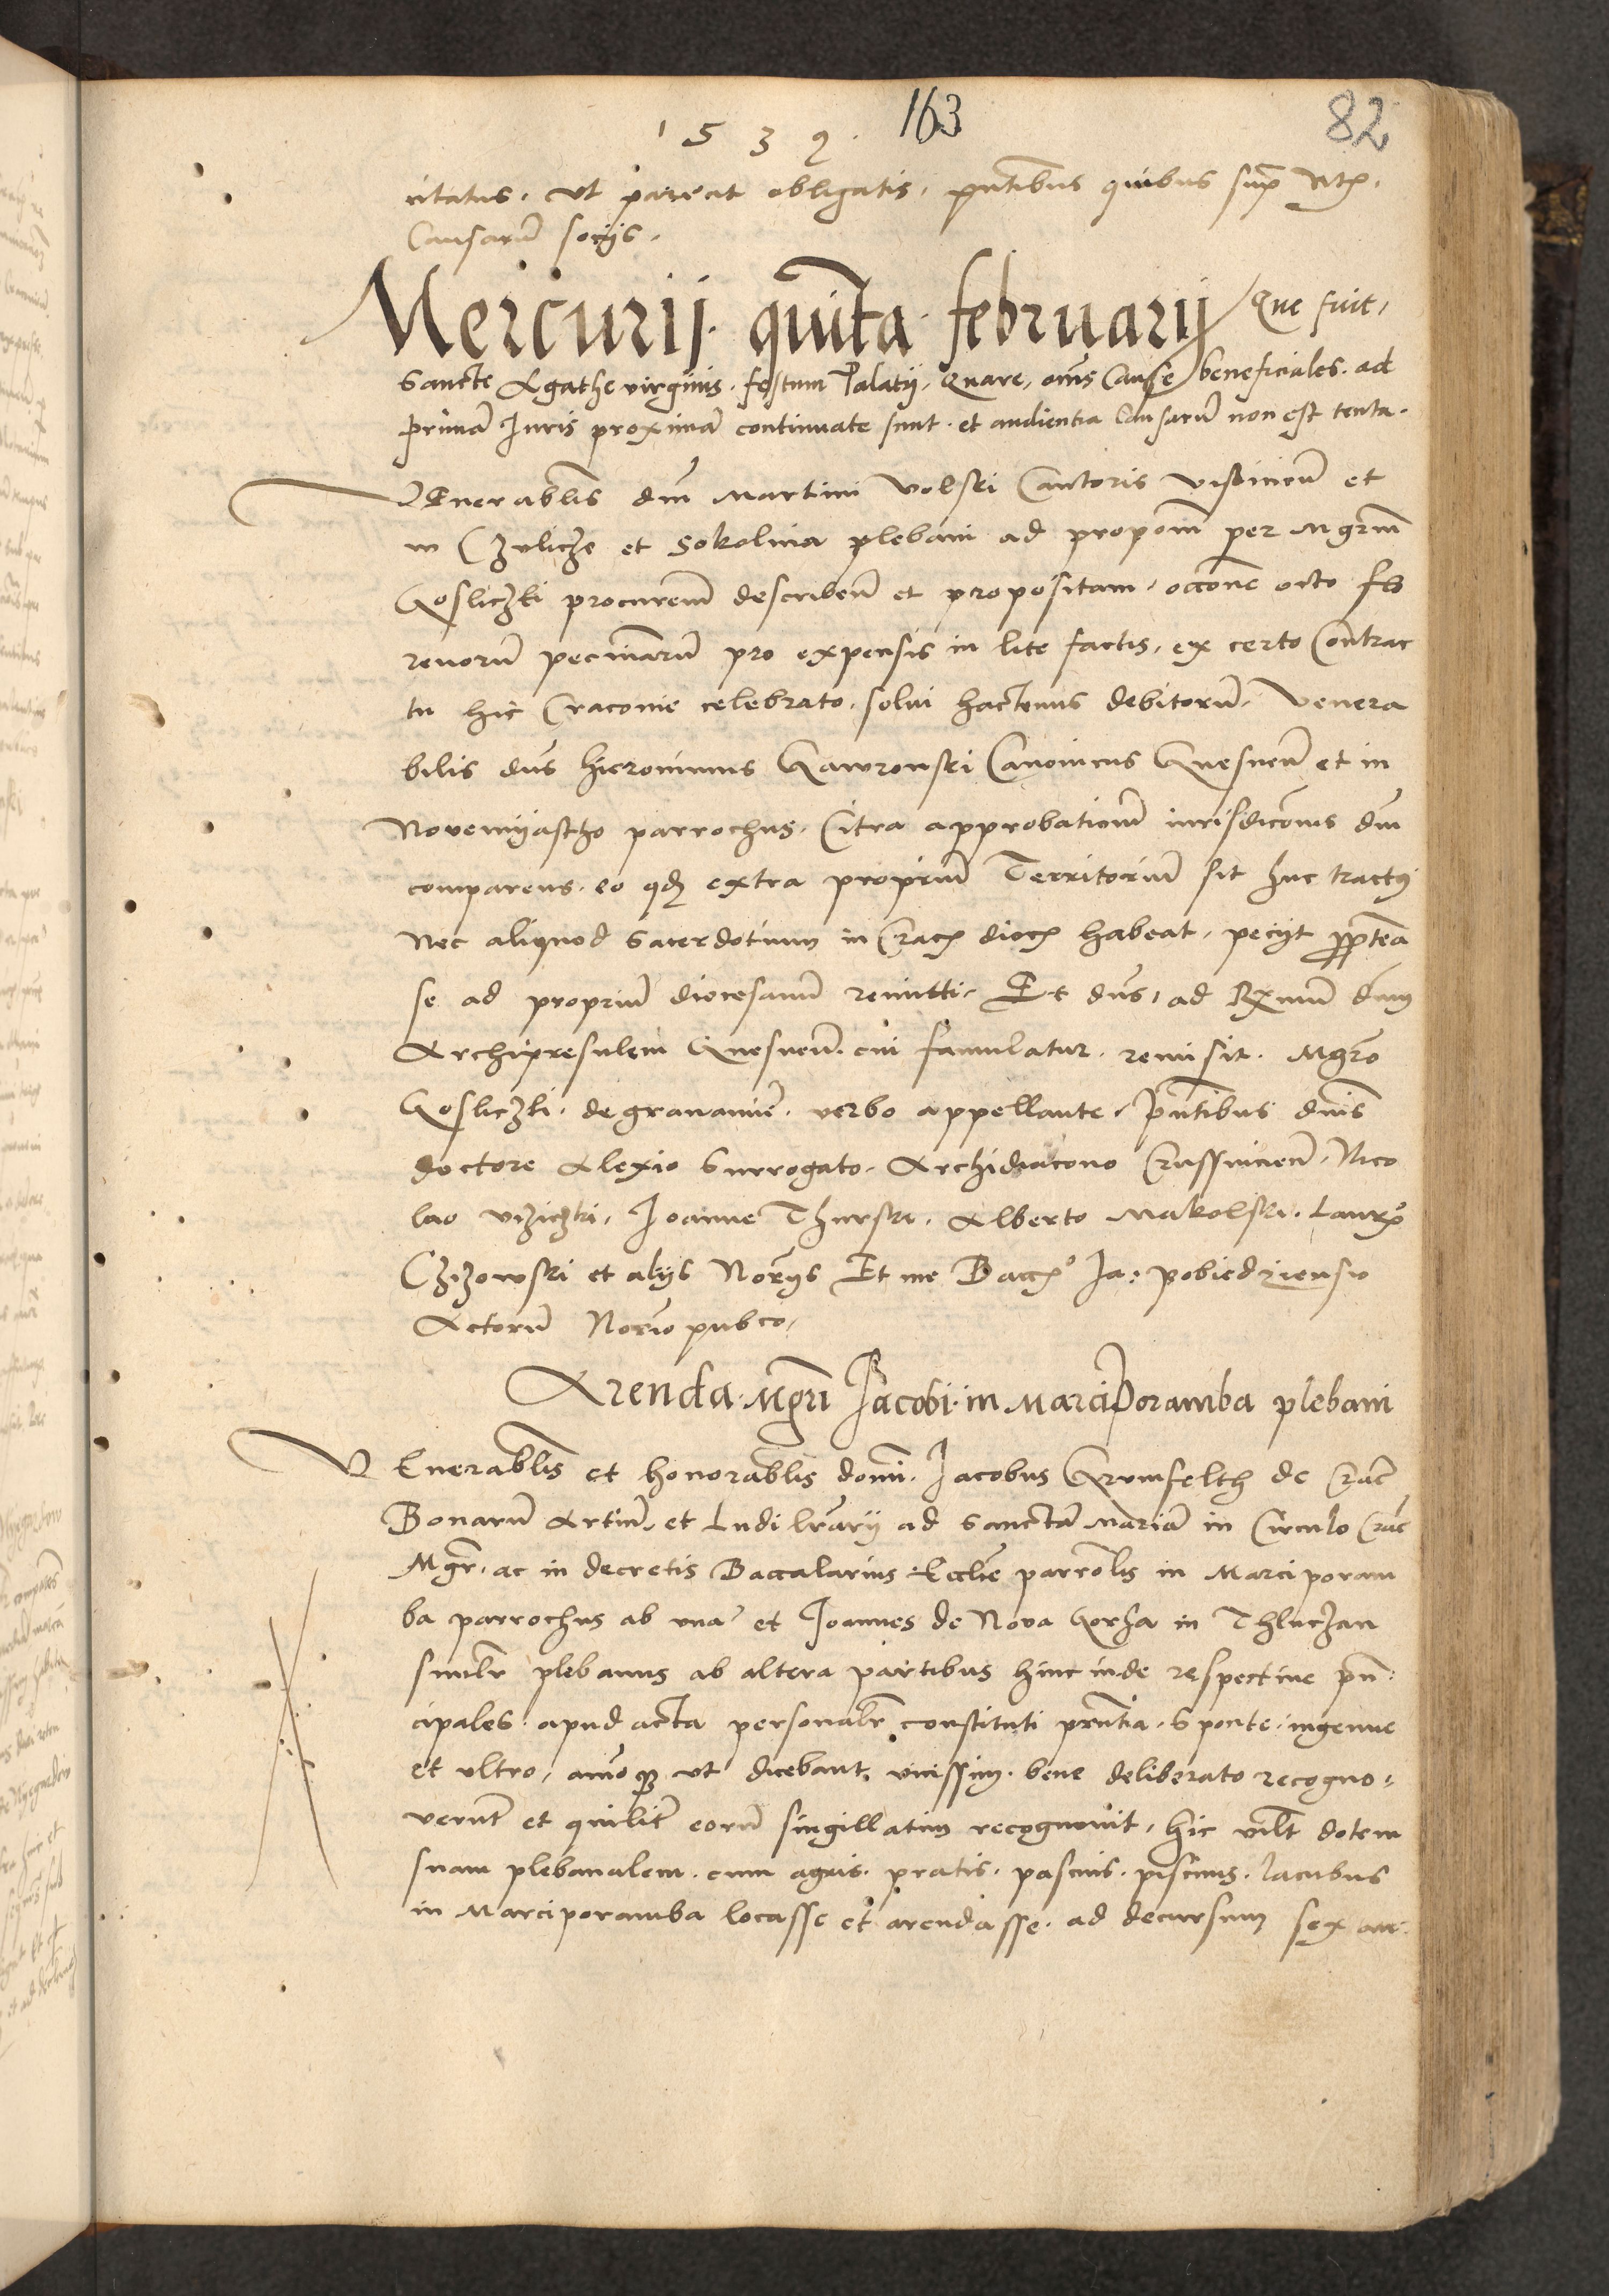 1 5 3 9. 163 82
citatus. Ut pareat obligatis. pntibus quibus supra Notr.
Causarum socijs.
Mercurij. quinta. februarij Que fuit,
Sancte Agathe virginis. festum Palatij. Quare, omnes Cause beneficiales. ad
primam Juris proximam continuate sunt. et audientia causarum non est tenta.
VEnerablis dni Martini Volski Cantoris Vislicien et
in Czulicze et Sokolina plebani ad propom per Mgrm
Gosliczki procurem describen et propositam. occone octo
renorum pecuniarum pro expensis in lite factis, ex certo Contrac
tu hic Cracovie celebrato. solui hactenus debitorum. Venera
bilis dns Hieronimus Gawronski Canonicus Gnesnen et in
Novemyastho parrochus. Citra approbationem iurisdiconis dni
comparens. eo qd extra proprium Territorium sit huc tractus
Nec aliquod sacerdotium in Crac dioc habeat. pecijt propterea
se ad proprium diocesanum remitti. Et dns, ad Rxmum dnum
Archipresulem Gnesnen. cui famulatur. remisit. Mgro
Gosliczki. de gravamine. verbo appellante. Pntibus dnis
doctore Alexio Surrogato. Archidiacono Crussvicien. Nico
lao Vizichki. Joanne Thurski. Alberto Makolski. Lauro
Czizowski et alijs Norijs Et me Bacc Ja: pobiedziensi
Actorum Norio pubco.
Arenda. Mgri Jacobi. in Marciporamba plebani
VEnerablis et honorablis domi. Jacobus Grumfelth de Crac
Bonarum Artium. et Ludi lrarij ad Sanctam Mariam in Circulo Crac
Mgr. ac in decretis Baccalarius. Ecclie parrolis in Marciporam
ba parrochus ab una et Joannes de Nova Gorha in Thluczan
similr plebanus ab altera partibus hinc inde respective prin
cipales. apud acta personalr constituti prntia. Sponte. ingenue
et ultro. aimoque ut dicebant. vicissim. bene deliberato recogno=
verunt et quilit eorum singillatim recognovit. Hic vdlt dotem
suam plebanalem. cum agris. pratis. pascuis. piscinis. lacubus
in Marciporamba locasse et arendasse. ad decursum sex an